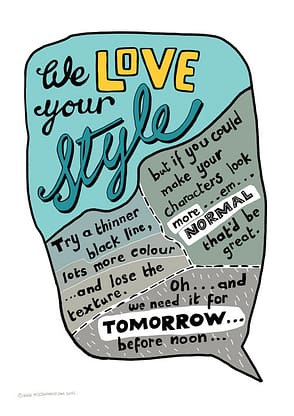 We LOVE
your
style
Try a thinner
black line,
lots more colour
...and lose the
texture.
but if you could
make your
characters look
more ...em...
NORMAL
that'd be
great.
Oh....and
we need it for
TOMORROW...
before noon...